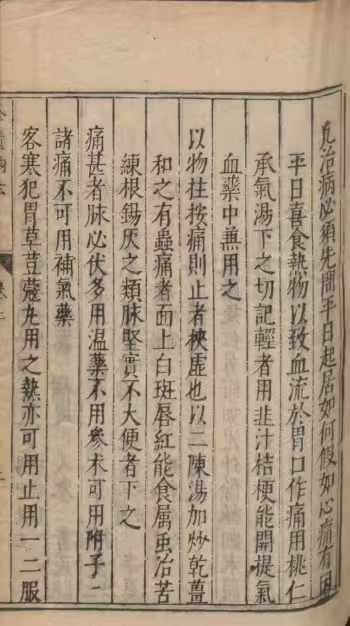 凡治病必須先問平日起居如何假如心痛有因
平日喜食熱物以致血流於胃口作痛用桃仁
承氣湯下之切記輕者用韭汁桔梗能開提氣
血藥中兼用之
以物柱按痛則止者挾虛也以二陳湯加炒乾薑
和之有蟲痛者面上白斑唇紅能食属虫治苦
練根錫灰之類脉堅實不大便者下之
痛甚者脉必伏多用温藥不用參术可用附子
諸痛不可用補氣藥
客寒犯胃草荳蔻丸用之熱亦可用止用一二服